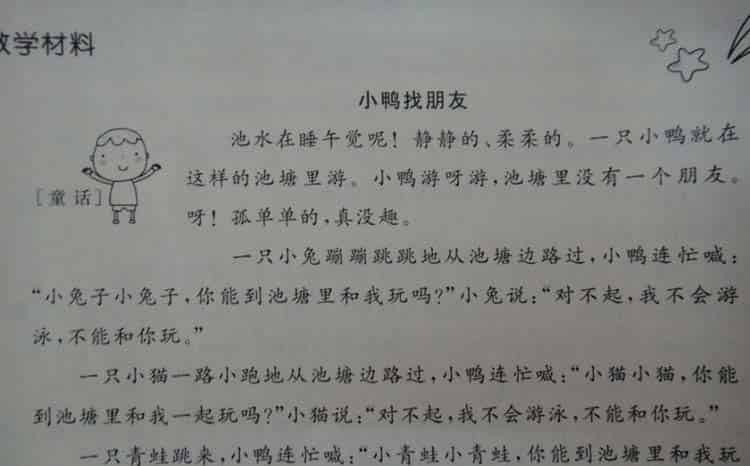 教学材料
小鸭找朋友
池水在睡午觉呢！静静的、柔柔的。一只小鸭就在
这样的池塘里游。小鸭游呀游，池塘里没有一个朋友。
[童话]
呀！孤单单的，真没趣。
一只小兔蹦蹦跳跳地从池塘边路过，小鸭连忙喊：
“小兔子小兔子，你能到池塘里和我玩吗?”小兔说：“对不起，我不会游
泳，不能和你玩。”
一只小猫一路小跑地从池塘边路过，小鸭连忙喊：“小猫小猫，你能
到池塘里和我一起玩吗?”小猫说：“对不起，我不会游泳，不能和你玩。”
一只青蛙跳来，小鸭连忙喊：“小青蛙小青蛙，你能到池塘里和我玩